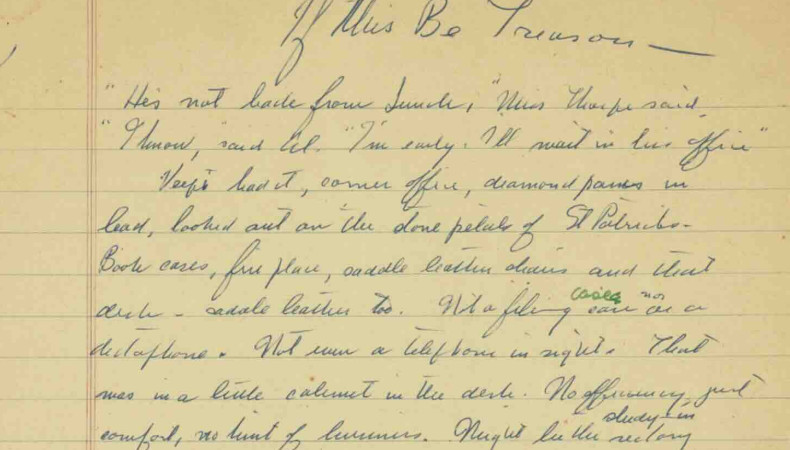 If This Be Treason —
"He's not back from Lunch," Miss Thorpe said.
"I know," said Ed. "I'm early. I'll wait in his office"
Veep's had it, corner office, diamond panes in
lead, looked out on the stone petals of St Patricks -
Book cases, fire place, saddle leather chairs and that
desk - saddle leather too. Not a filing case nor a
dictaphone. Not even a telephone in sight. That
was in a little cabinet in the desk. No efficiency just
comfort, no hint of business. Might be the study in rectory